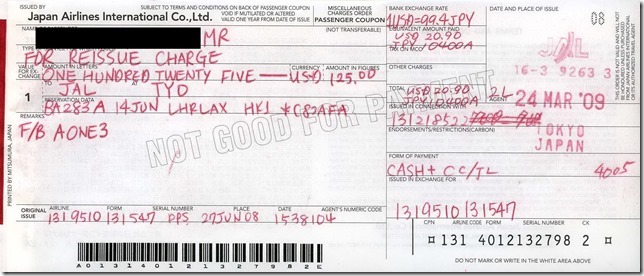 ISSUED BY
Japan Airlines International Co.,Ltd.
SUBJECT TO TERMS AND CONDITIONS ON BACK OF PASSENGER COUPON
VOID IF MUTILATED OR ALTERED
VALID ONE YEAR FROM DATE OF ISSUE
MISCELLANEOUS
CHARGES ORDER
PASSENGER COUPON
(NOT TRANSFERABLE)
MR
FOR REISSUE CHARGE
VALUE FOR EXCHANGE
AMOUNT IN LETTERS
CURRENCY
AMOUNT IN FIGURES
ONE HUNDRED TWENTY FIVE — USD 125.00
TO
AT
1
JAL TYO
RESERVATION DATA
14JUN LHRLAX HK1
REMARKS
F/B AONE3
NOT GOOD FOR PAYMENT
PRINTED BY MITSUMURA, JAPAN
ORIGINAL ISSUE
AIRLINE
FORM
SERIAL NUMBER
PLACE
DATE
AGENT'S NUMERIC CODE
1319510131547 PPS 27JUN08 1538104
A013140121327982E
BANK EXCHANGE RATE
USD=99.4JPY
EQUIVALENT AMOUNT PAID
USD 20.90
TAX ON MCO
JPY 10400A
OTHER CHARGES
TOTAL
USD 20.90
JPY 10400A
ISSUED IN CONNECTION WITH
ENDORSEMENTS/RESTRICTIONS(CARBON)
FORM OF PAYMENT
CASH+CC/JL 4005
ISSUED IN EXCHANGE FOR
1319510131547
DATE AND PLACE OF ISSUE
08
JAL
16-3 9263 3
AGENT
24 MAR '09
TOKYO
JAPAN
CPN
AIRLINE CODE
FORM
SERIAL NUMBER
CK
131 4012132798 2
DO NOT MARK OR WRITE IN THE WHITE AREA ABOVE